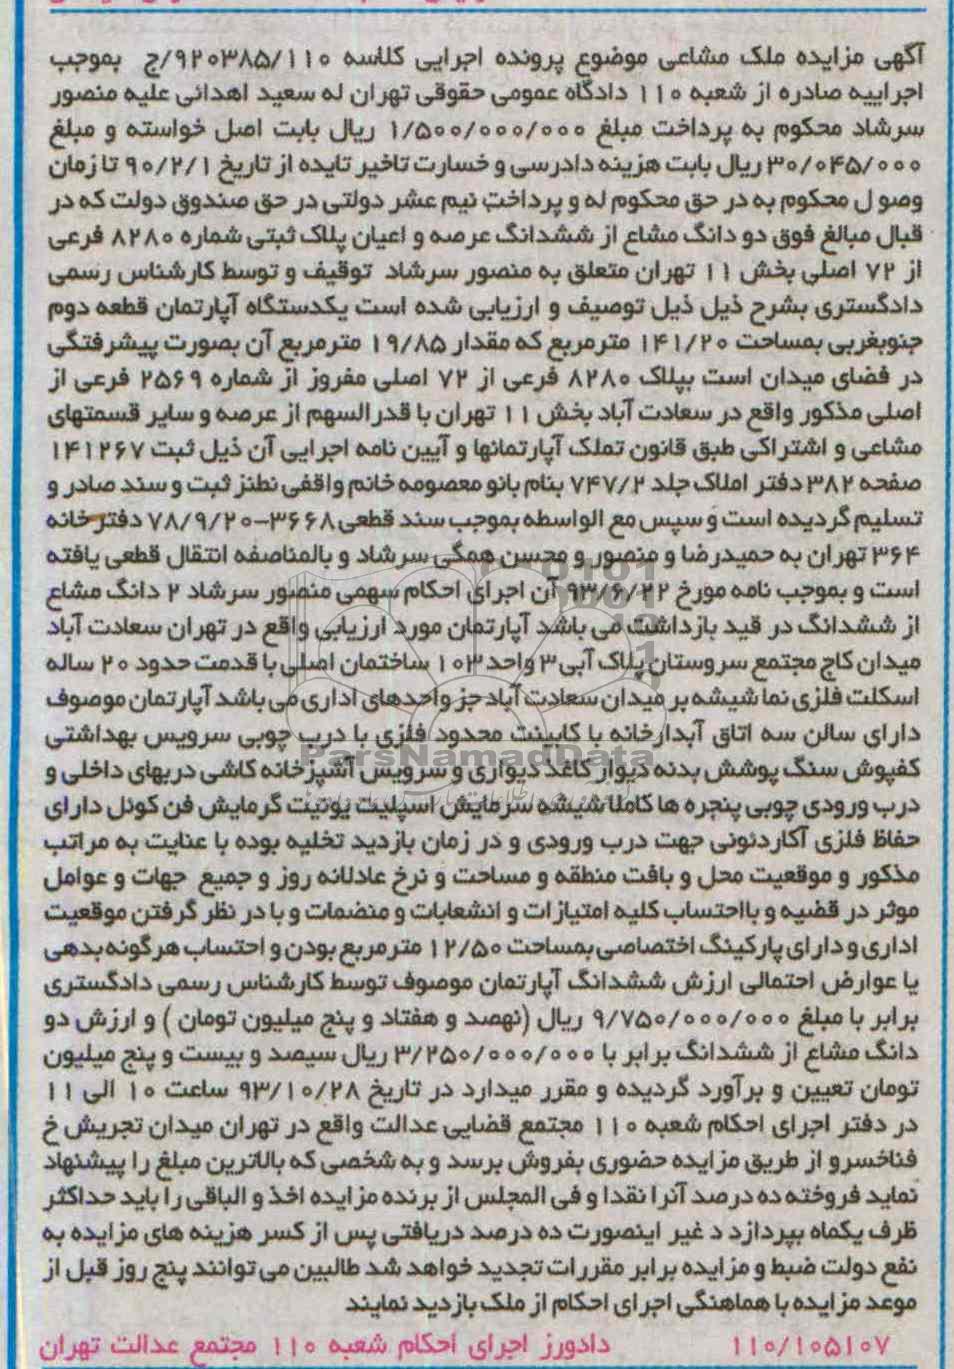 آگهی مزایده ملک مشاعی موضوع پرونده اجرایی کلاسه ۹۲۰۳۸۵/۱۱۰/ج بموجب
اجراییه صادره از شعبه ۱۱۰ دادگاه عمومی حقوقی تهران له سعید اهدائی علیه منصور
سرشاد محکوم به پرداخت مبلغ ۱/۵۰۰/۰۰۰/۰۰۰ ریال بابت اصل خواسته و مبلغ
۳۰/۰۴۵/۰۰۰ ریال بابت هزینه دادرسی و خسارت تاخیر تایده از تاریخ ۹۰/۲/۱ تا زمان
وصو ل محکوم به در حق محکوم له و پرداخت نیم عشر دولتی در حق صندوق دولت که در
قبال مبالغ فوق دو دانگ مشاع از ششدانگ عرصه و اعیان پلاک ثبتی شماره ۸۲۸۰ فرعی
از ۷۲ اصلی بخش ۱۱ تهران متعلق به منصور سرشاد توقیف و توسط کارشناس رسمی
دادگستری بشرح ذیل ذیل توصیف و ارزیابی شده است یکدستگاه آپارتمان قطعه دوم
جنوبغربی بمساحت ۱۴۱/۲۰ مترمربع که مقدار ۱۹/۸۵ مترمربع آن بصورت پیشرفتگی
در فضای میدان است بپلاک ۸۲۸۰ فرعی از ۷۲ اصلی مفروز از شماره ۲۵۶۹ فرعی از
اصلی مذکور واقع در سعادت آباد بخش ۱۱ تهران با قدرالسهم از عرصه و سایر قسمتهای
مشاعی و اشتراکی طبق قانون تملک آپارتمانها و آیین نامه اجرایی آن ذیل ثبت ۱۴۱۲۶۷
صفحه ۳۸۲ دفتر املاک جلد ۷۴۷/۲ بنام بانو معصومه خانم واقفی نطنز ثبت و سند صادر و
تسلیم گردیده است و سپس مع الواسطه بموجب سند قطعی ۳۶۶۸-۷۸/۹/۲۰ دفترخانه
۳۶۴ تهران به حمیدرضا و منصور و محسن همگی سرشاد و بالمناصفه انتقال قطعی یافته
است و بموجب نامه مورخ ۹۳/۶/۲۲ آن اجرای احکام سهمی منصور سرشاد ۲ دانگ مشاع
از ششدانگ در قید بازداشت می باشد آپارتمان مورد ارزیابی واقع در تهران سعادت آباد
میدان کاج مجتمع سروستان پلاک آبی ۳ واحد ۱۰۳ ساختمان اصلی با قدمت حدود ۲۰ ساله
اسکلت فلزی نما شیشه بر میدان سعادت آباد جز واحدهای اداری می باشد آپارتمان موصوف
دارای سالن سه اتاق آبدارخانه با کابینت محدود فلزی با درب چوبی سرویس بهداشتی
کفپوش سنگ پوشش بدنه دیوار کاغذ دیواری و سرویس آشپزخانه کاشی دربهای داخلی و
درب ورودی چوبی پنجره ها کاملا شیشه سرمایش اسپلیت یونیت گرمایش فن کوئل دارای
حفاظ فلزی آکاردئونی جهت درب ورودی و در زمان بازدید تخلیه بوده با عنایت به مراتب
مذکور و موقعیت محل و بافت منطقه و مساحت و نرخ عادلانه روز و جمیع جهات و عوامل
موثر در قضیه و بااحتساب کلیه امتیازات و انشعابات و منضمات و با در نظر گرفتن موقعیت
اداری و دارای پارکینگ اختصاصی بمساحت ۱۲/۵۰ مترمربع بودن و احتساب هرگونه بدهی
یا عوارض احتمالی ارزش ششدانگ آپارتمان موصوف توسط کارشناس رسمی دادگستری
برابر با مبلغ ۹/۷۵۰/۰۰۰/۰۰۰ ریال (نهصد و هفتاد و پنج میلیون تومان ) و ارزش دو
دانگ مشاع از ششدانگ برابر با ۳/۲۵۰/۰۰۰/۰۰۰ ریال سیصد و بیست و پنج میلیون
تومان تعیین و برآورد گردیده و مقرر میدارد در تاریخ ۹۳/۱۰/۲۸ ساعت ۱۰ الی ۱۱
در دفتر اجرای احکام شعبه ۱۱۰ مجتمع قضایی عدالت واقع در تهران میدان تجریش خ
فناخسرو از طریق مزایده حضوری بفروش برسد و به شخصی که بالاترین مبلغ را پیشنهاد
نماید فروخته ده درصد آنرا نقدا و فی المجلس از برنده مزایده اخذ و الباقی را باید حداکثر
ظرف یکماه بپردازد د غیر اینصورت ده درصد دریافتی پس از کسر هزینه های مزایده به
نفع دولت ضبط و مزایده برابر مقررات تجدید خواهد شد طالبین می توانند پنج روز قبل از
موعد مزایده با هماهنگی اجرای احکام از ملک بازدید نمایند
۱۱۰/۱۰۵۱۰۷ دادورز اجرای احکام شعبه ۱۱۰ مجتمع عدالت تهران
ParsNamadData